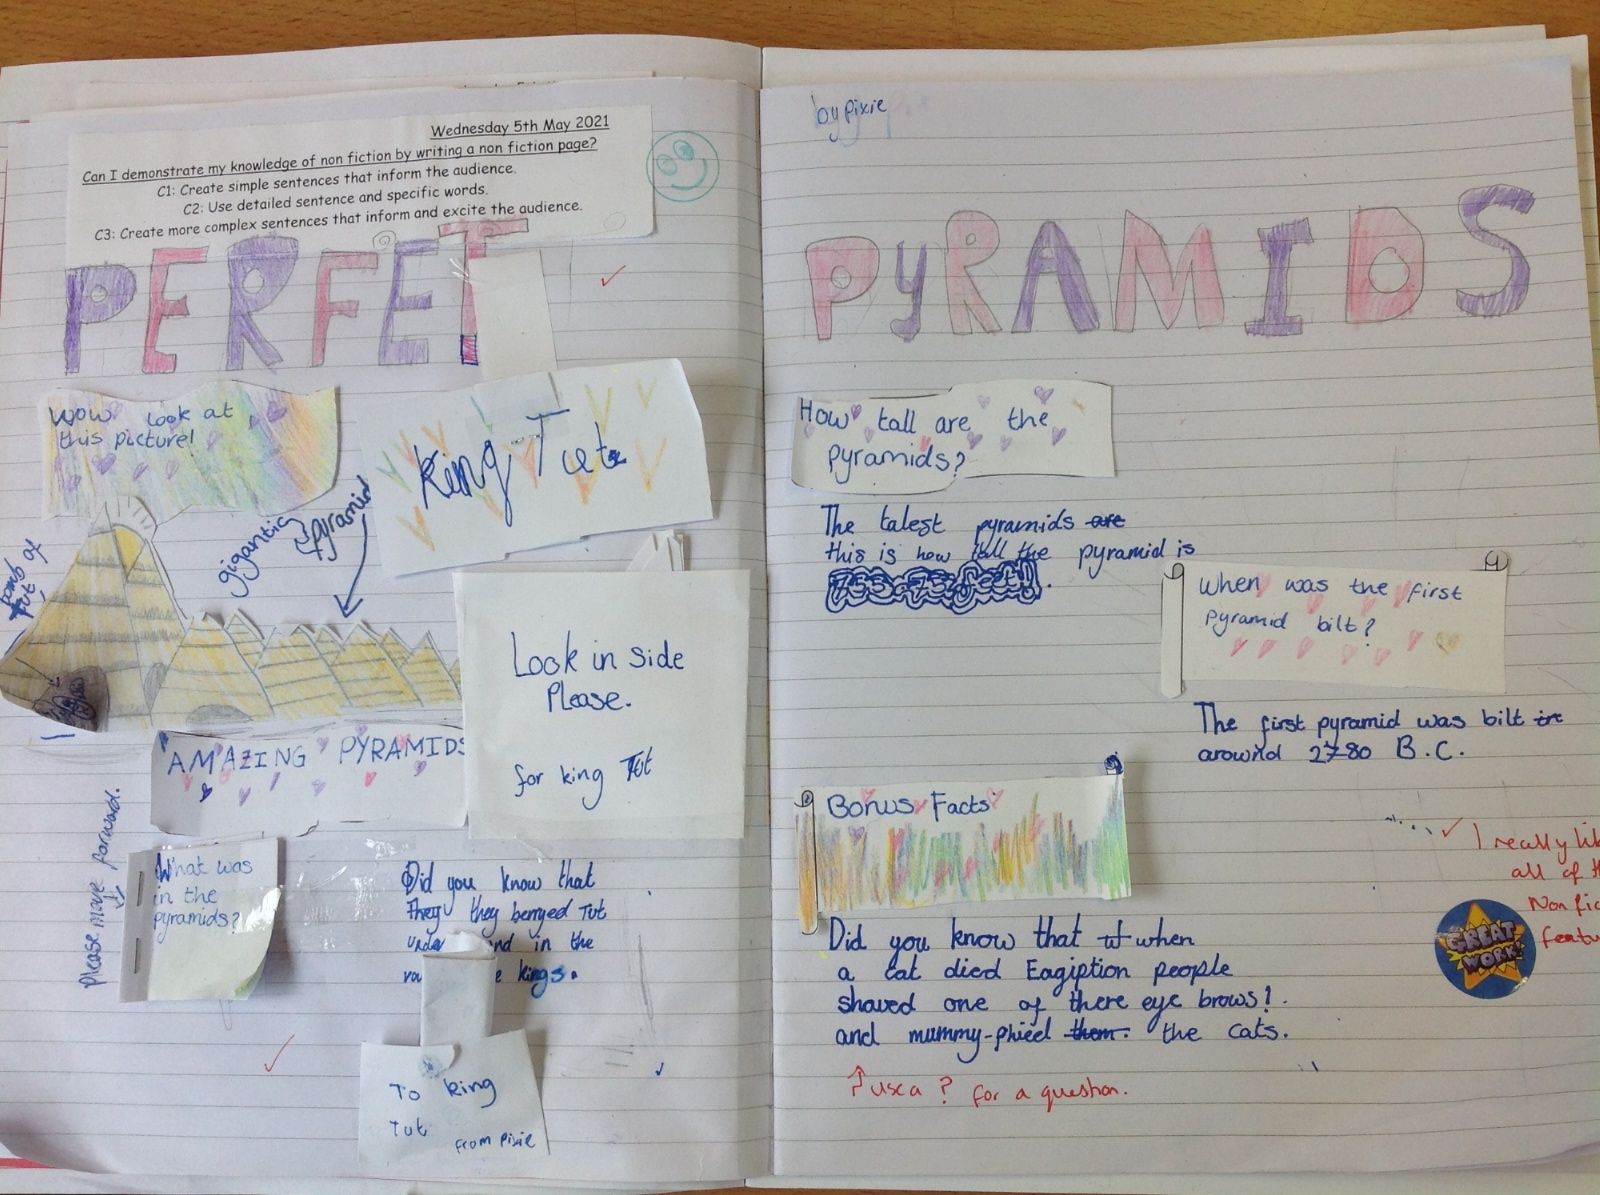 Wednesday 5th May 2021
Can I demonstrate my knowledge of non fiction by writing a non fiction page?
C1: Create simple sentences that inform the audience.
C2: Use detailed sentence and specific words.
C3: Create more complex sentences that inform and excite the audience.
PERFET
Wow look at
this picture!
King Tut
gigantic
pyramid
tomb of
Tut
AMAZING PYRAMIDS
Look in side
Please.
for king Tut
Please move forward.
What was
in the
pyramids?
Did you know that
They they berryed Tut
und nd in the
va e kings.
To king
Tut
from pixie
by Pixie
PYRAMIDS
How tall are the
pyramids?
The talest pyramids are
this is how tall the pyramid is
755.75 feet!.
When was the first
Pyramid bilt?
The first pyramid was bilt in
arownd 2780 B.C.
Bonus Facts
Did you know that when
a cat dierd Eagiption people
shaved one of there eye brows!
and mummy-phied them. the cats.
use a ? for a question.
I really lik
all of th
Non fic
featu
GREAT
WORK!